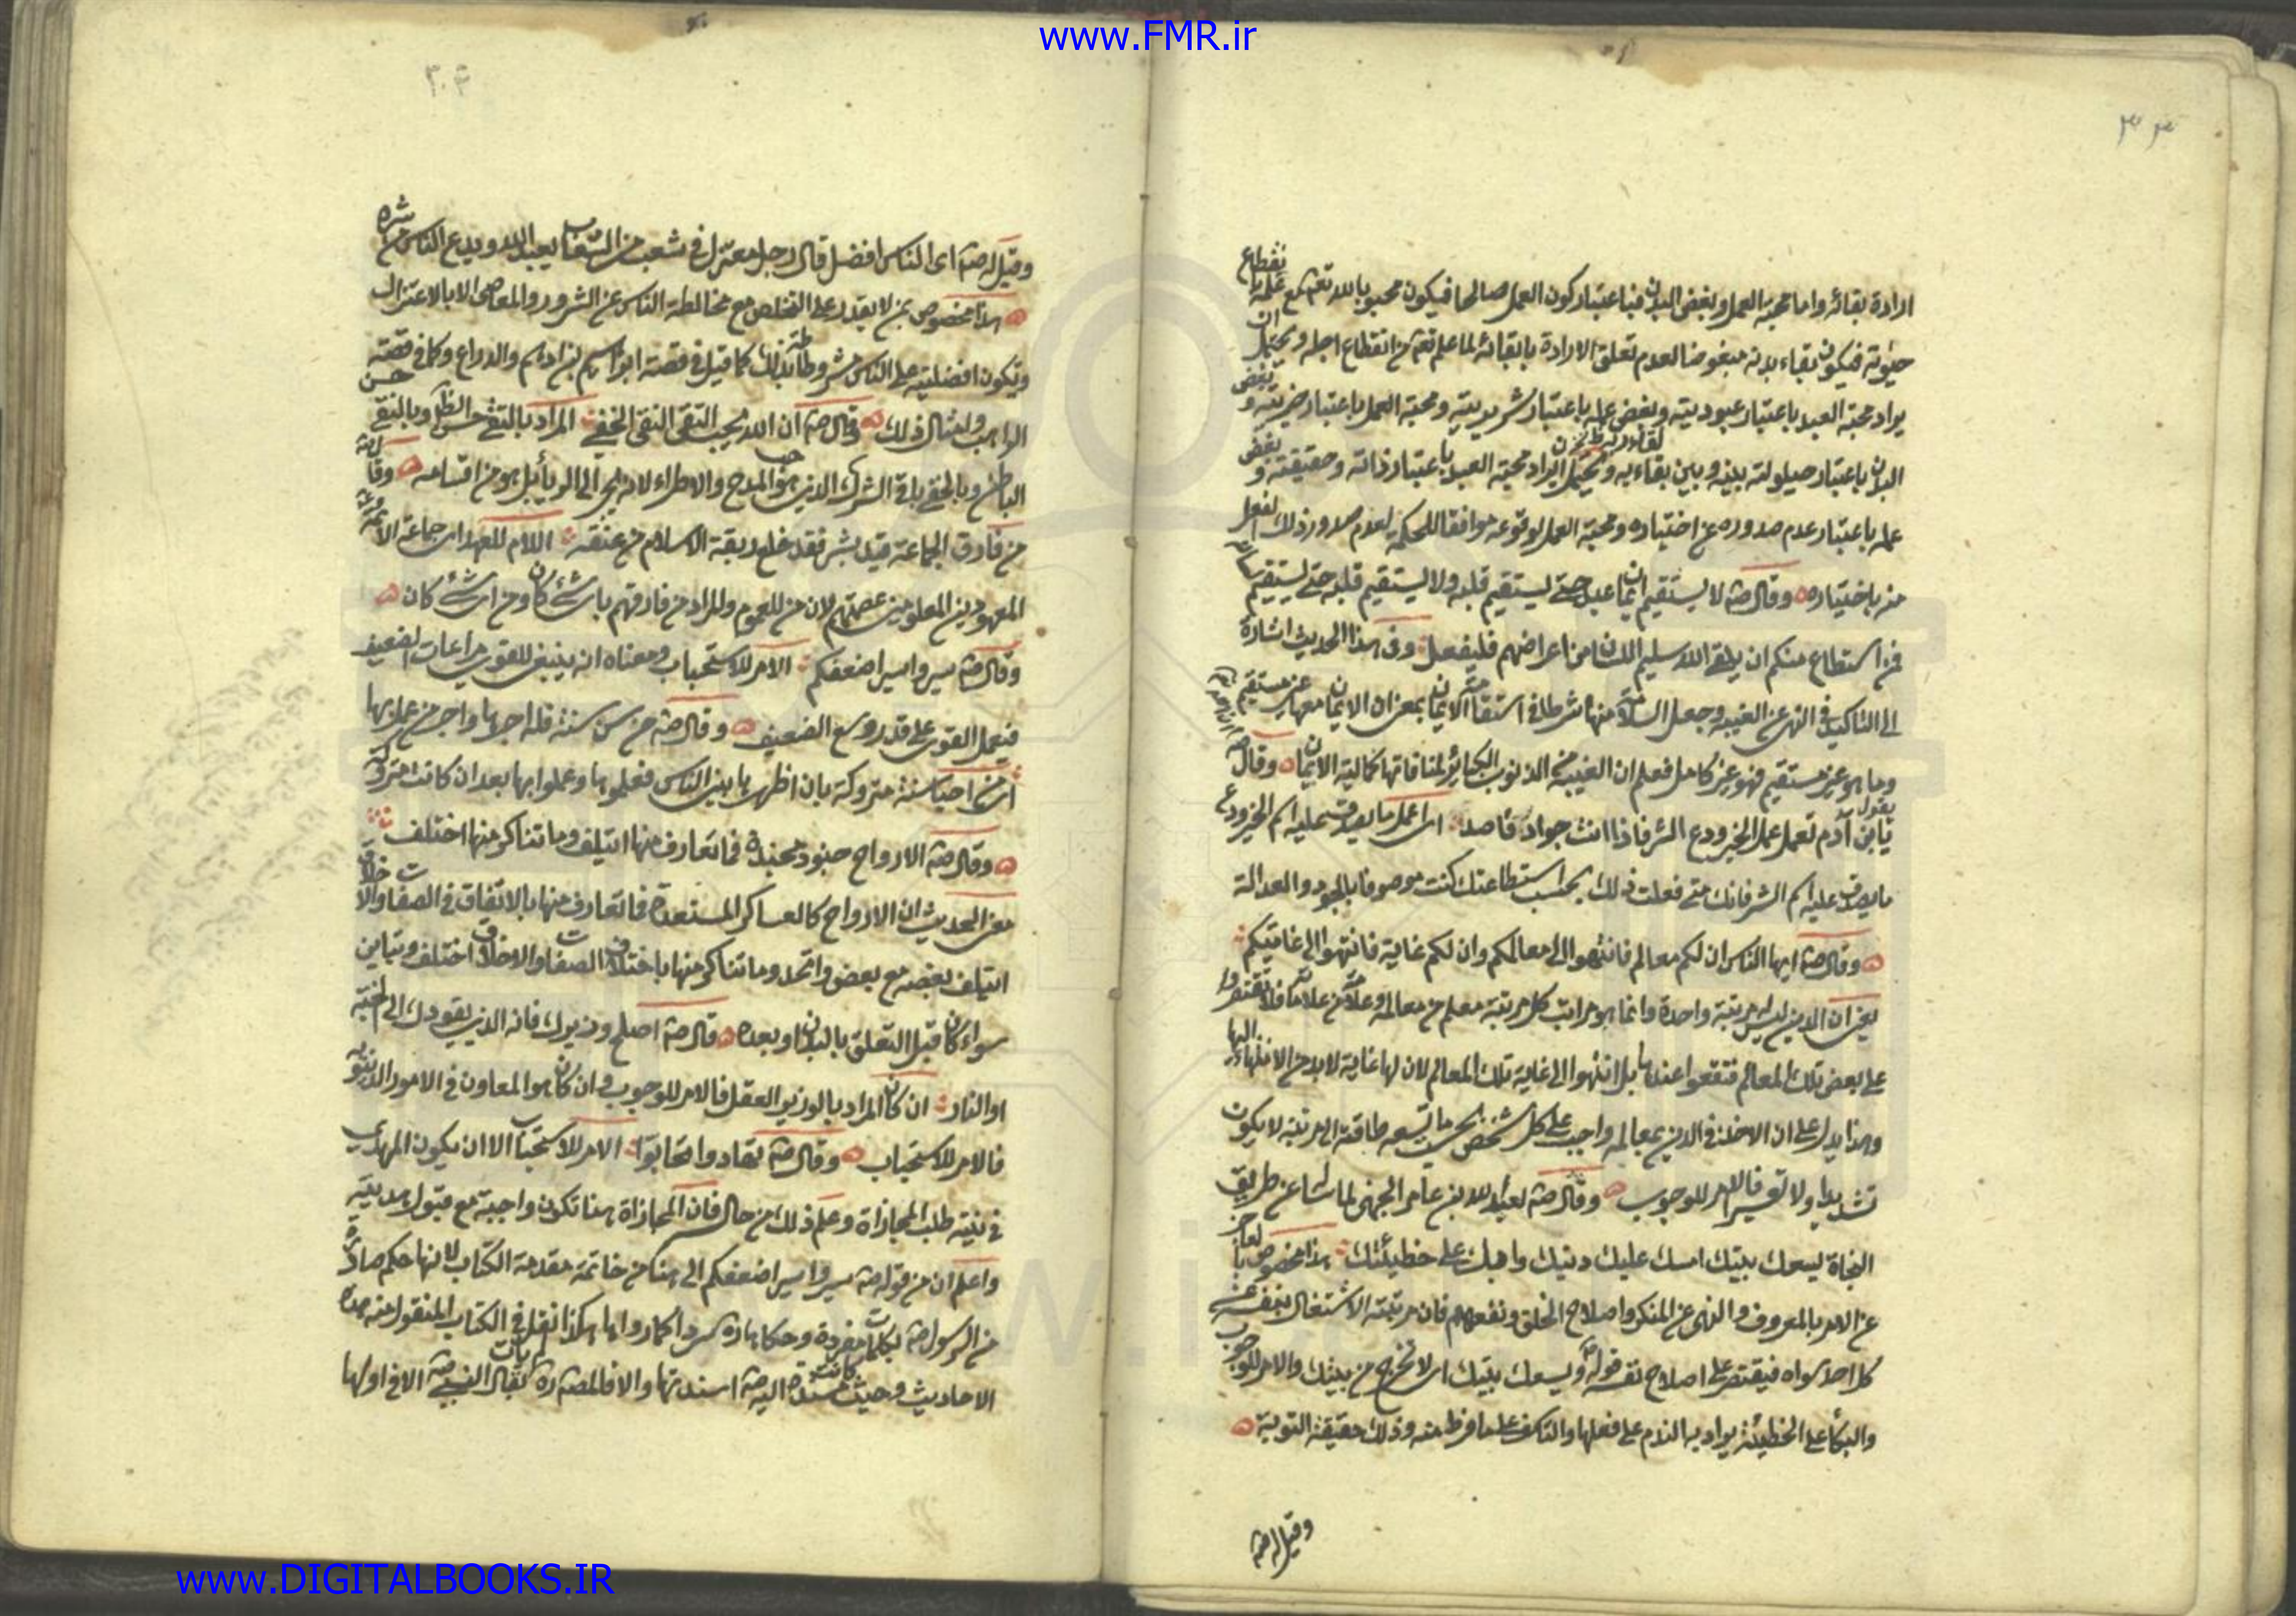 www.FMR.ir
ارادة بقائه واما محبة العمل وبغض البدن فباعتبار كون العمل صالحا فيكون محبوبا لله تعم مع علمه بانقطاع
حيوته فيكون بقاء بدنه مبغوضا لعدم تعلق الارادة بابقائه لما علم تعم من انقطاع اجله ويحتمل ان
يراد محبة العبد باعتبار عبوديته وبغض عمله باعتبار شريريته ومحبة العمل باعتبار خيريته وبغض
البدن باعتبار حيلولته بينه وبين بقاء به ويحتمل ان يراد محبة العبد باعتبار ذاته وحقيقته وبغض
عمله باعتبار عدم صدوره عن اختياره ومحبة العمل لوقوعه موافقا للحكمة لعدم صدور ذلك الفعل
منه باختياره وقال صه لا يستقيم ايمان عبد حتى يستقيم قلبه ولا يستقيم قلبه حتى يستقيم لسانه
فمن استطاع منكم ان يلقى الله سليم اللسان من اعراضهم فليفعل وفى هذا الحديث اشارة
الى التاكيد فى النهى عن الغيبة وجعل السلامة منها شرطا فى استقامة الايمان بمعنى ان الايمان معها غير مستقيم
وما هو غير مستقيم فهو غير كامل فعلم ان الغيبة من الذنوب الكبائر لمنافاتها كمالية الايمان وقال صه
يقول يا بن آدم تعمل عمل الخير ودع الشر فاذا انت جواد قاصد اى اعمل ما يصدق عليه اسم الخير ودع
ما يصدق عليه اسم الشر فانك متى فعلت ذلك بحسب استطاعتك كنت موصوفا بالجود والعدالة
وقال صه ايها الناس ان لكم معالم فانتهوا الى معالمكم وان لكم غاية فانتهوا الى غايتكم
يعنى ان الدين ليس مرتبة واحدة وانما هو مراتب كل مرتبة معلم من معالمه وعلامة من علاماته فلا تقتصروا
على بعض تلك المعالم فتقفوا عندها بل انتهوا الى غاية تلك المعالم لان لها غاية لا بد من الانتهاء اليها
وهذا يدل على ان الاخذ فى الدين بمعالمه واجب على كل شخص بحسب ما تسعه طاقته الى مرتبة لا يكون
تشديدا ولا تعسيرا فالامر للوجوب وقال صه لعبد الله بن عامر الجهنى لما سأله عن طريق
النجاة ليسعك بيتك امسك عليك دينك وابك على خطيئتك هذا مخصوص بالعاجز
عن الامر بالمعروف والنهى عن المنكر واصلاح الخلق ونفعهم فان مرتبته الاشتغال بنفسه عن
كل احد سواه فيقتصر على اصلاح نفسه قوله وليسعك بيتك اى لا تخرج من بيتك والامر للوجوب
والبكا على الخطيئة يراد به الندم على فعلها والتاسف على ما فرط منه وذلك حقيقة التوبة
وقيل له صه
وقيل له صه اى الناس افضل قال رجل معتزل فى شعب من الشعاب يعبد الله ويدع الناس من شره
هذا مخصوص بمن لا يقدر على التخلص مع مخالطة الناس عن الشرور والمعاصى الا بالاعتزال
وتكون افضليته على الناس مشروطة بذلك كما قيل فى قصة ابراهيم بن ادهم والدراع وكما فى قصة
الراهب وامثال ذلك وقال صه ان الله يحب التقى النقى الخفى المراد بالتقى حسن الظاهر وبالنقى حسن
الباطن وبالخفى باقى الشرك الذى هو حب المدح والاطراء لانه يجر الى الريا بل هو من اقسامه وقال صه
من فارق الجماعة قيد شبر فقد خلع ربقة الاسلام من عنقه اللام للعهد اى جماعة الائمة
المعهودين المعلومين عصمتهم لان من للعموم والمراد من فارقهم باى شئ كان ومن اى شئ كان
وقال صه سيروا سير اضعفكم الامر للاستحباب ومعناه انه ينبغى للقوى مراعات الضعيف
فيعمل القوى على قدر وسع الضعيف وقال صه من سن سنة فله اجرها واجر من عمل بها
اى من احيا سنة متروكة بان اظهرها بين الناس فعلموها وعملوا بها بعد ان كانت متروكة
وقال صه الارواح جنود مجندة فما تعارف منها ائتلف وما تناكر منها اختلف
معنى الحديث ان الارواح كالعساكر المستعدة فما تعارف منها بالاتفاق فى الصفات والاخلاق
ائتلف بعضه مع بعض واتحد وما تناكر منها باختلاف الصفات والاخلاق اختلف وتباين
سواء كان قبل التعلق بالبدن او بعده وقال صه اصلح وزيرك فانه الذى يقودك الى الجنة
او النار ان كان المراد بالوزير العقل فالامر للوجوب وان كان هو المعاون فى الامور الدنيوية
فالامر للاستحباب وقال صه تهادوا تحابوا الامر للاستحباب الا ان يكون المهدى
فى نيته طلب المجازاة وعلم ذلك من حاله فان المجازاة هنا تكون واجبة مع قبول هديته
واعلم ان من قوله صه سيروا سير اضعفكم الى هنا من خاتمة مقدمة الكتاب لانها حكم صادرة
من الرسول صه بكلمات مفردة وحكاها سردا كما رواها هكذا نقل فى الكتاب المنقول منه هذه
الاحاديث وحيث كانت مسندة اليه صه اسندتها والا فالمصدرة بقال النبى صه الا فى اولها
www.DIGITALBOOKS.IR